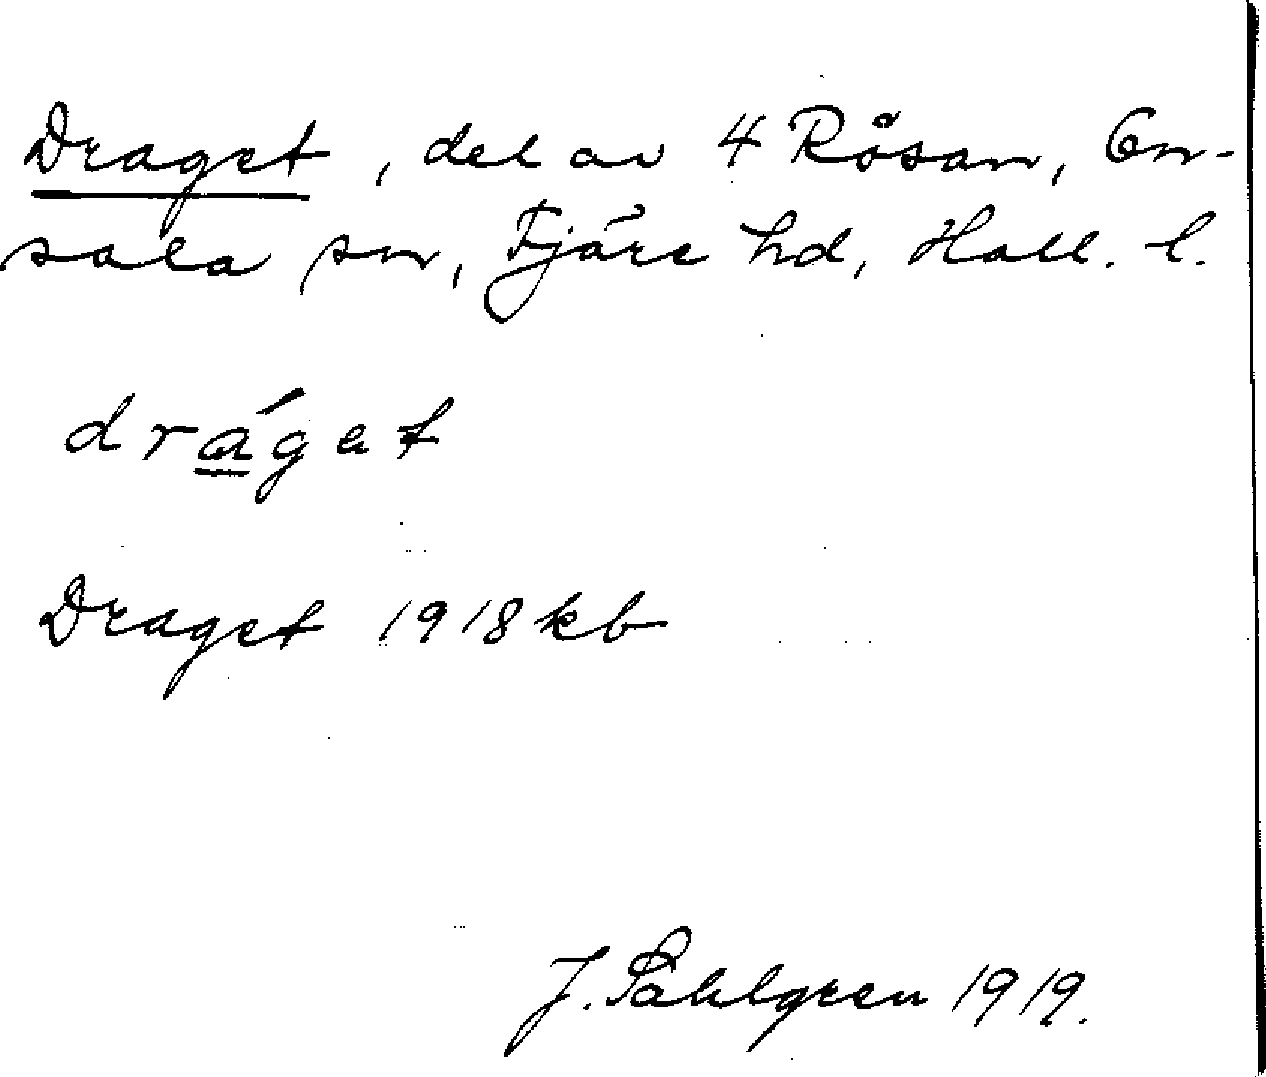 Draget, del av 4 Rösan, On-
sala sn, Fjäre hd, Hall. l.
dráget
Draget 1918 kb
J. Sahlgren 1919.